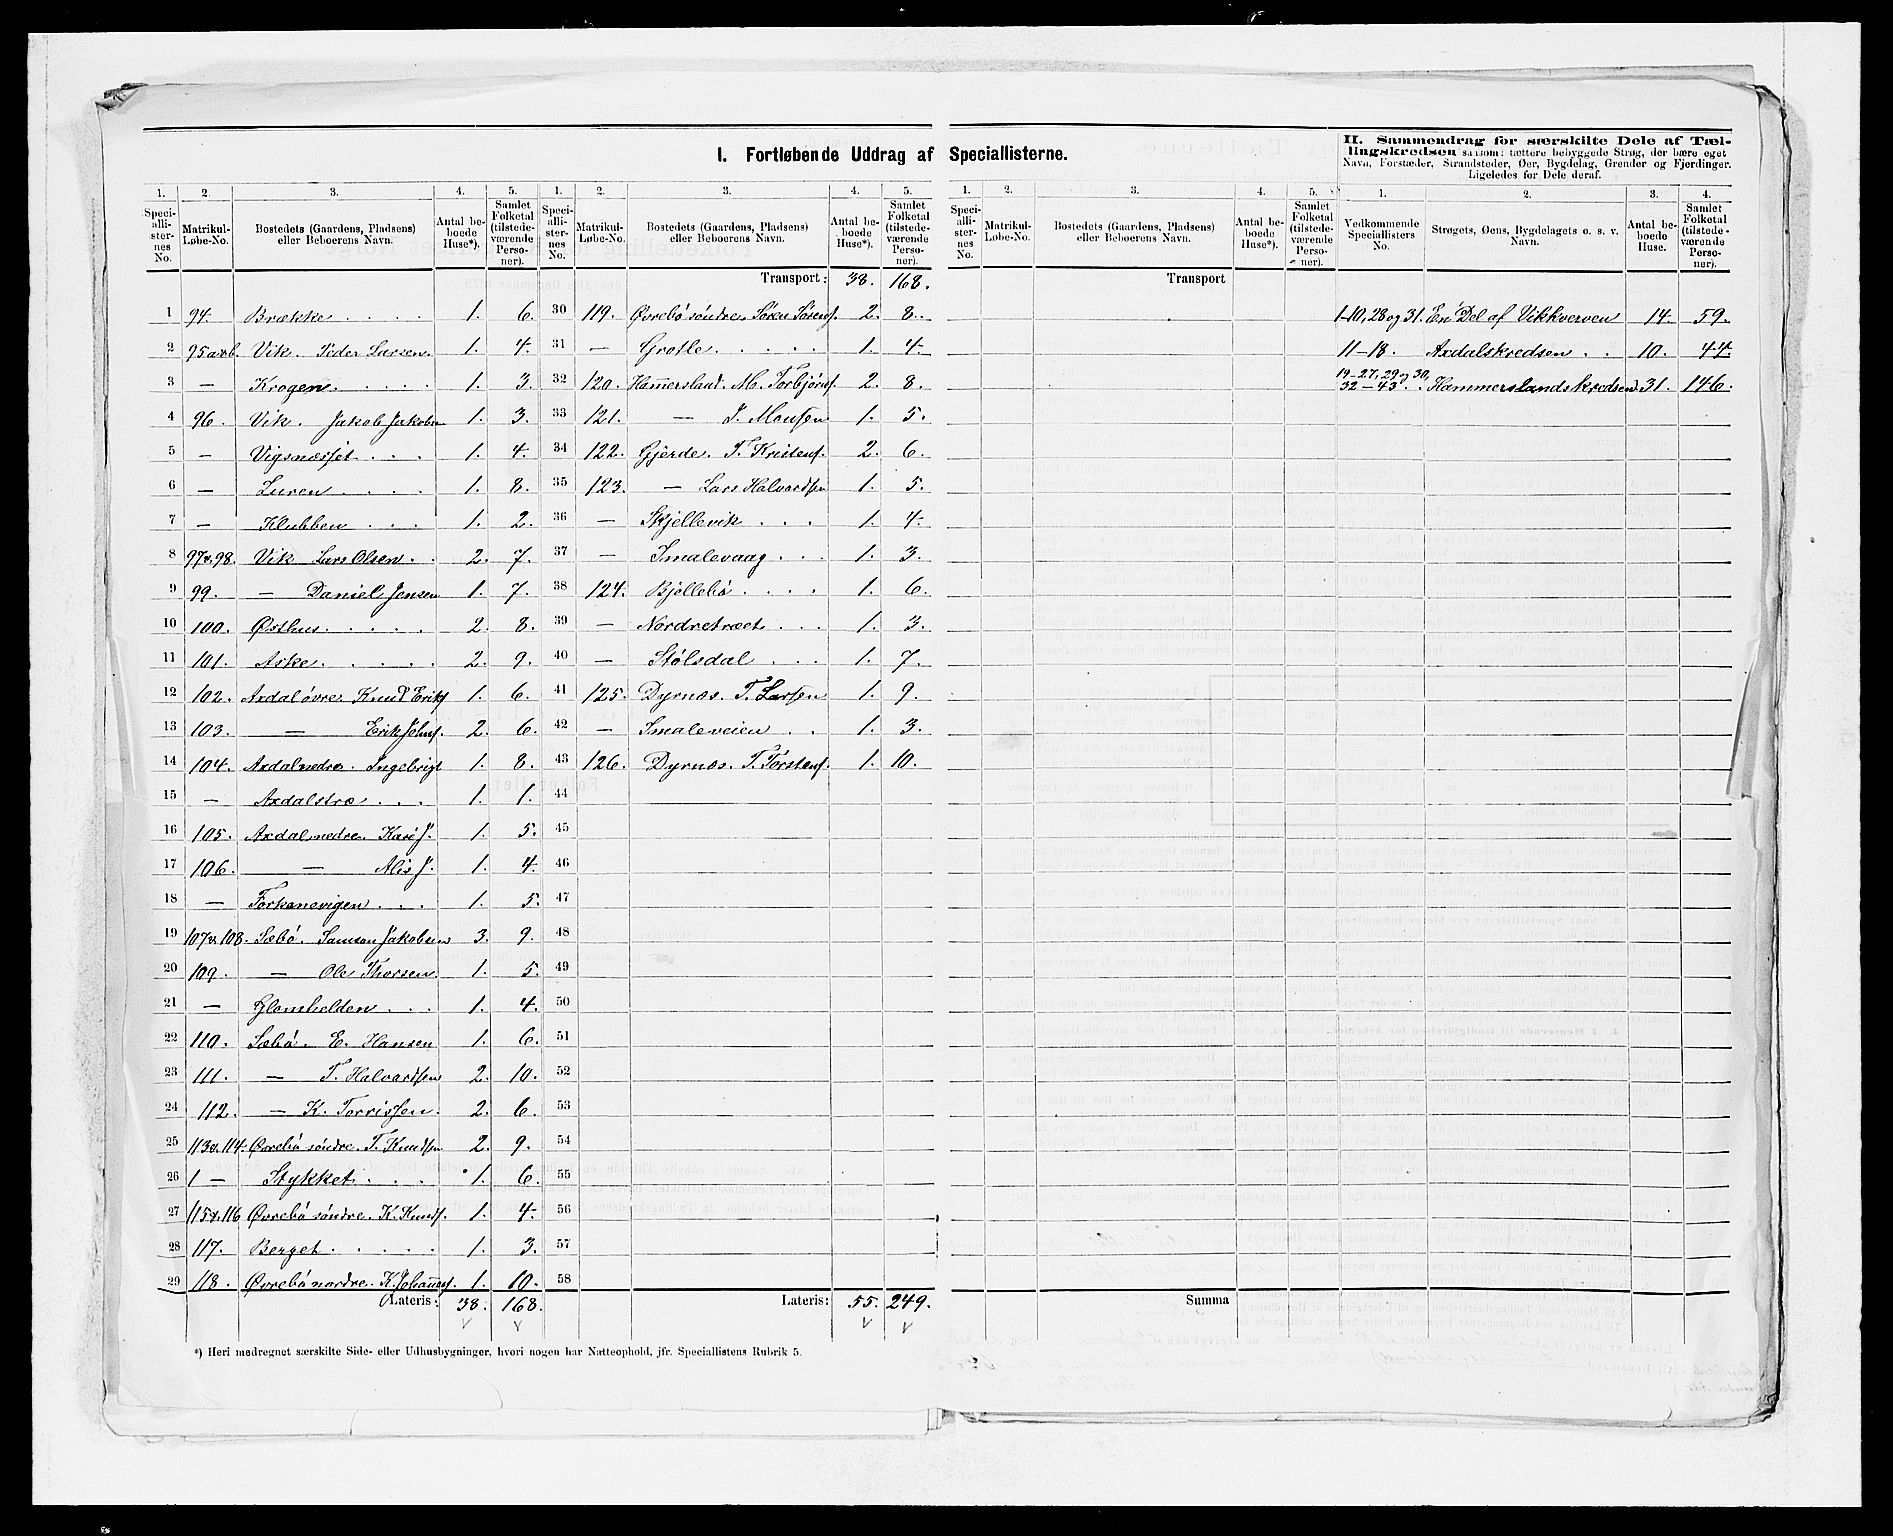 I. Fortløbende Uddrag af Speciallisterne.
II. Sammendrag for særskilte Dele af Tællingskredsen saasom: tættere bebyggede Strøg, der bære eget Navn, Forstæder, Strandsteder, Øer, Bygdelag, Grender og Fjerdinger. Ligeledes for Dele deraf.
1. 2. 3. 4. 5. 1. 2. 3. 4. 5. 1. 2. 3. 4. 5. 1. 2. 3. 4.
Speciallisternes No. Matrikul-Løbe-No. Bostedets (Gaardens, Pladsens) eller Beboerens Navn. Antal beboede Huse*). Samlet Folketal (tilstedeværende Personer).
Speciallisternes No. Matrikul-Løbe-No. Bostedets (Gaardens, Pladsens) eller Beboerens Navn. Antal beboede Huse*). Samlet Folketal (tilstedeværende Personer).
Speciallisternes No. Matrikul-Løbe-No. Bostedets (Gaardens, Pladsens) eller Beboerens Navn. Antal beboede Huse*). Samlet Folketal (tilstedeværende Personer).
Vedkommende Speciallisters No. Strøgets, Øens, Bygdelagets o. s. v. Navn. Antal beboede Huse. Samlet Folketal (tilstedeværende Personer).
1 94. Brække 1. 6.
2 95a&b. Vik. Peder Larsen. 1. 4.
3 — Krogen. 1. 3.
4 96. Vik. Jakob Jakobsen 1. 3.
5 — Vigsnæsset 1. 4.
6 — Luren 1. 8.
7 — Klubben 1. 2.
8 97&98. Vik Lars Olsen. 2. 7.
9 99. — Daniel Jensen 1. 7.
10 100. Østhus. 2. 8.
11 101. Aske. 2. 9.
12 102. Axdal øvre. Knud Eriks. 1. 6.
13 103. — Erik Johns. 2. 6.
14 104. Axdal nedre. Ingebrigt 1. 8.
15 — Axdalstræ 1. 1.
16 105. Axdal nedre. Kari J. 1. 5.
17 106. — Alis J. 1. 4.
18 — Torkanevigen 1. 5.
19 107&108. Sæbö. Samson Jakobsen 3. 9.
20 109. — Ole Thorsen. 1. 5.
21 — Glomhelden 1. 4.
22 110. Sæbö. E. Hansen 1. 6.
23 111. — T. Halvardsen 2. 10.
24 112. — K. Torrissen. 2. 6.
25 113&114. Øvrebö söndre. T. Knudsen 2. 9.
26 1 — Stykket 1. 6.
27 115&116 Øvrebö söndre. K. Knuds. 1. 4.
28 117. Berget 1. 3.
29 118. Øvrebö nordre. K. Johannes. 1. 10.
Lateris: 38. 168.
Transport: 38. 168.
30 119. Øvrebö söndre. Sören Sörens. 2. 8.
31 — Grotle 1. 4.
32 120. Hammersland. M. Torbjörns. 2. 8.
33 121. — J. Monsen 1. 5.
34 122. Gjerde. T. Kristens. 2. 6.
35 123. — Lars Halvardsen 1. 5.
36 — Skjellevik 1. 4.
37 — Smalevaag 1. 3.
38 124. Bjellebö 1. 6.
39 — Nordretræet 1. 3.
40 — Stölsdal 1. 7.
41 125. Dyrnæs. T. Larsen 1. 9.
42 — Smaleveien 1. 3.
43 126. Dyrnæs. T. Torstens. 1. 10.
44
45
46
47
48
49
50
51
52
53
54
55
56
57
58
Lateris: 55. 249.
Transport
Summa
1-10, 28 og 31. En Del af Vikkverven 14. 59.
11-18. Axdalskredsen 10. 44.
19-27, 29 og 30, 32-43. Hammerslandskredsen. 31. 146.
*) Heri medregnet særskilte Side- eller Udhusbygninger, hvori nogen har Natteophold, jfr. Speciallistens Rubrik 5.